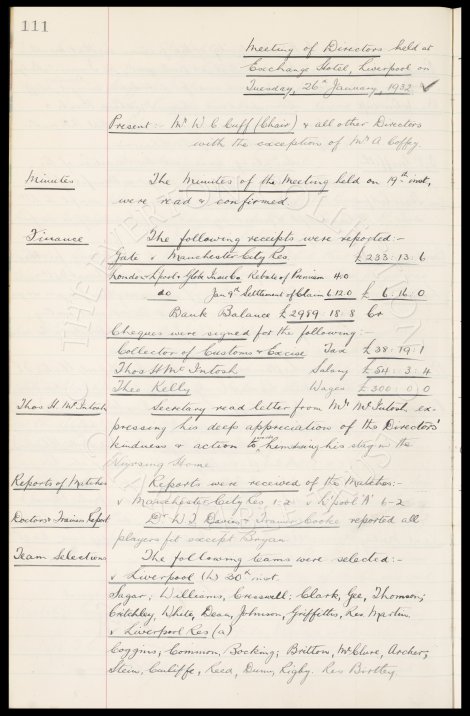 111
Meeting of Directors held at
Exchange Hotel, Liverpool on
Tuesday, 26th January, 1932
Present:- Mr W C Cuff (Chair) & all other Directors
with the exception of Mr A Coffey.
Minutes
The Minutes of the Meeting held on 19th inst,
were read & confirmed.
Finance
The following receipts were reported:-
Gate v Manchester City Res. £233: 13: 6
London & Globe Insce Co Rebate of Premium 4.0
do Jan 9th Settlement of Claim 6.12.0 £ 6: 16: 0
Bank Balance £2989: 18: 8 Cr
Cheques were signed for the following:-
Collector of Customs & Excise Tax £38: 19: 1
Thos H Mc Intosh Salary £54: 3: 4
Theo Kelly Wages £300: 0: 0
Thos H. Mc Intosh
Secretary read letter from Mr Mc Intosh, ex-
pressing his deep appreciation of the Directors'
kindness & action to him during his stay in the
Nursing Home
Reports of Matches
Reports were received of the Matches:-
v Manchester City Res 1-2 v L'pool 'A' 6-2
Doctors & Trainers Report
Dr W. J. Davies & Trainer Cooke reported all
players fit except Bryan
Team Selections
The following teams were selected:-
v Liverpool (h) 30th inst.
Sagar; Williams, Cresswell; Clark, Gee, Thomson;
Critchley, White, Dean, Johnson, Griffiths, Res. Martin.
v Liverpool Res (a)
Coggins; Common, Bocking; Britton, McClure, Archer;
Stein, Cunliffe, Reed, Dunn, Rigby. Res